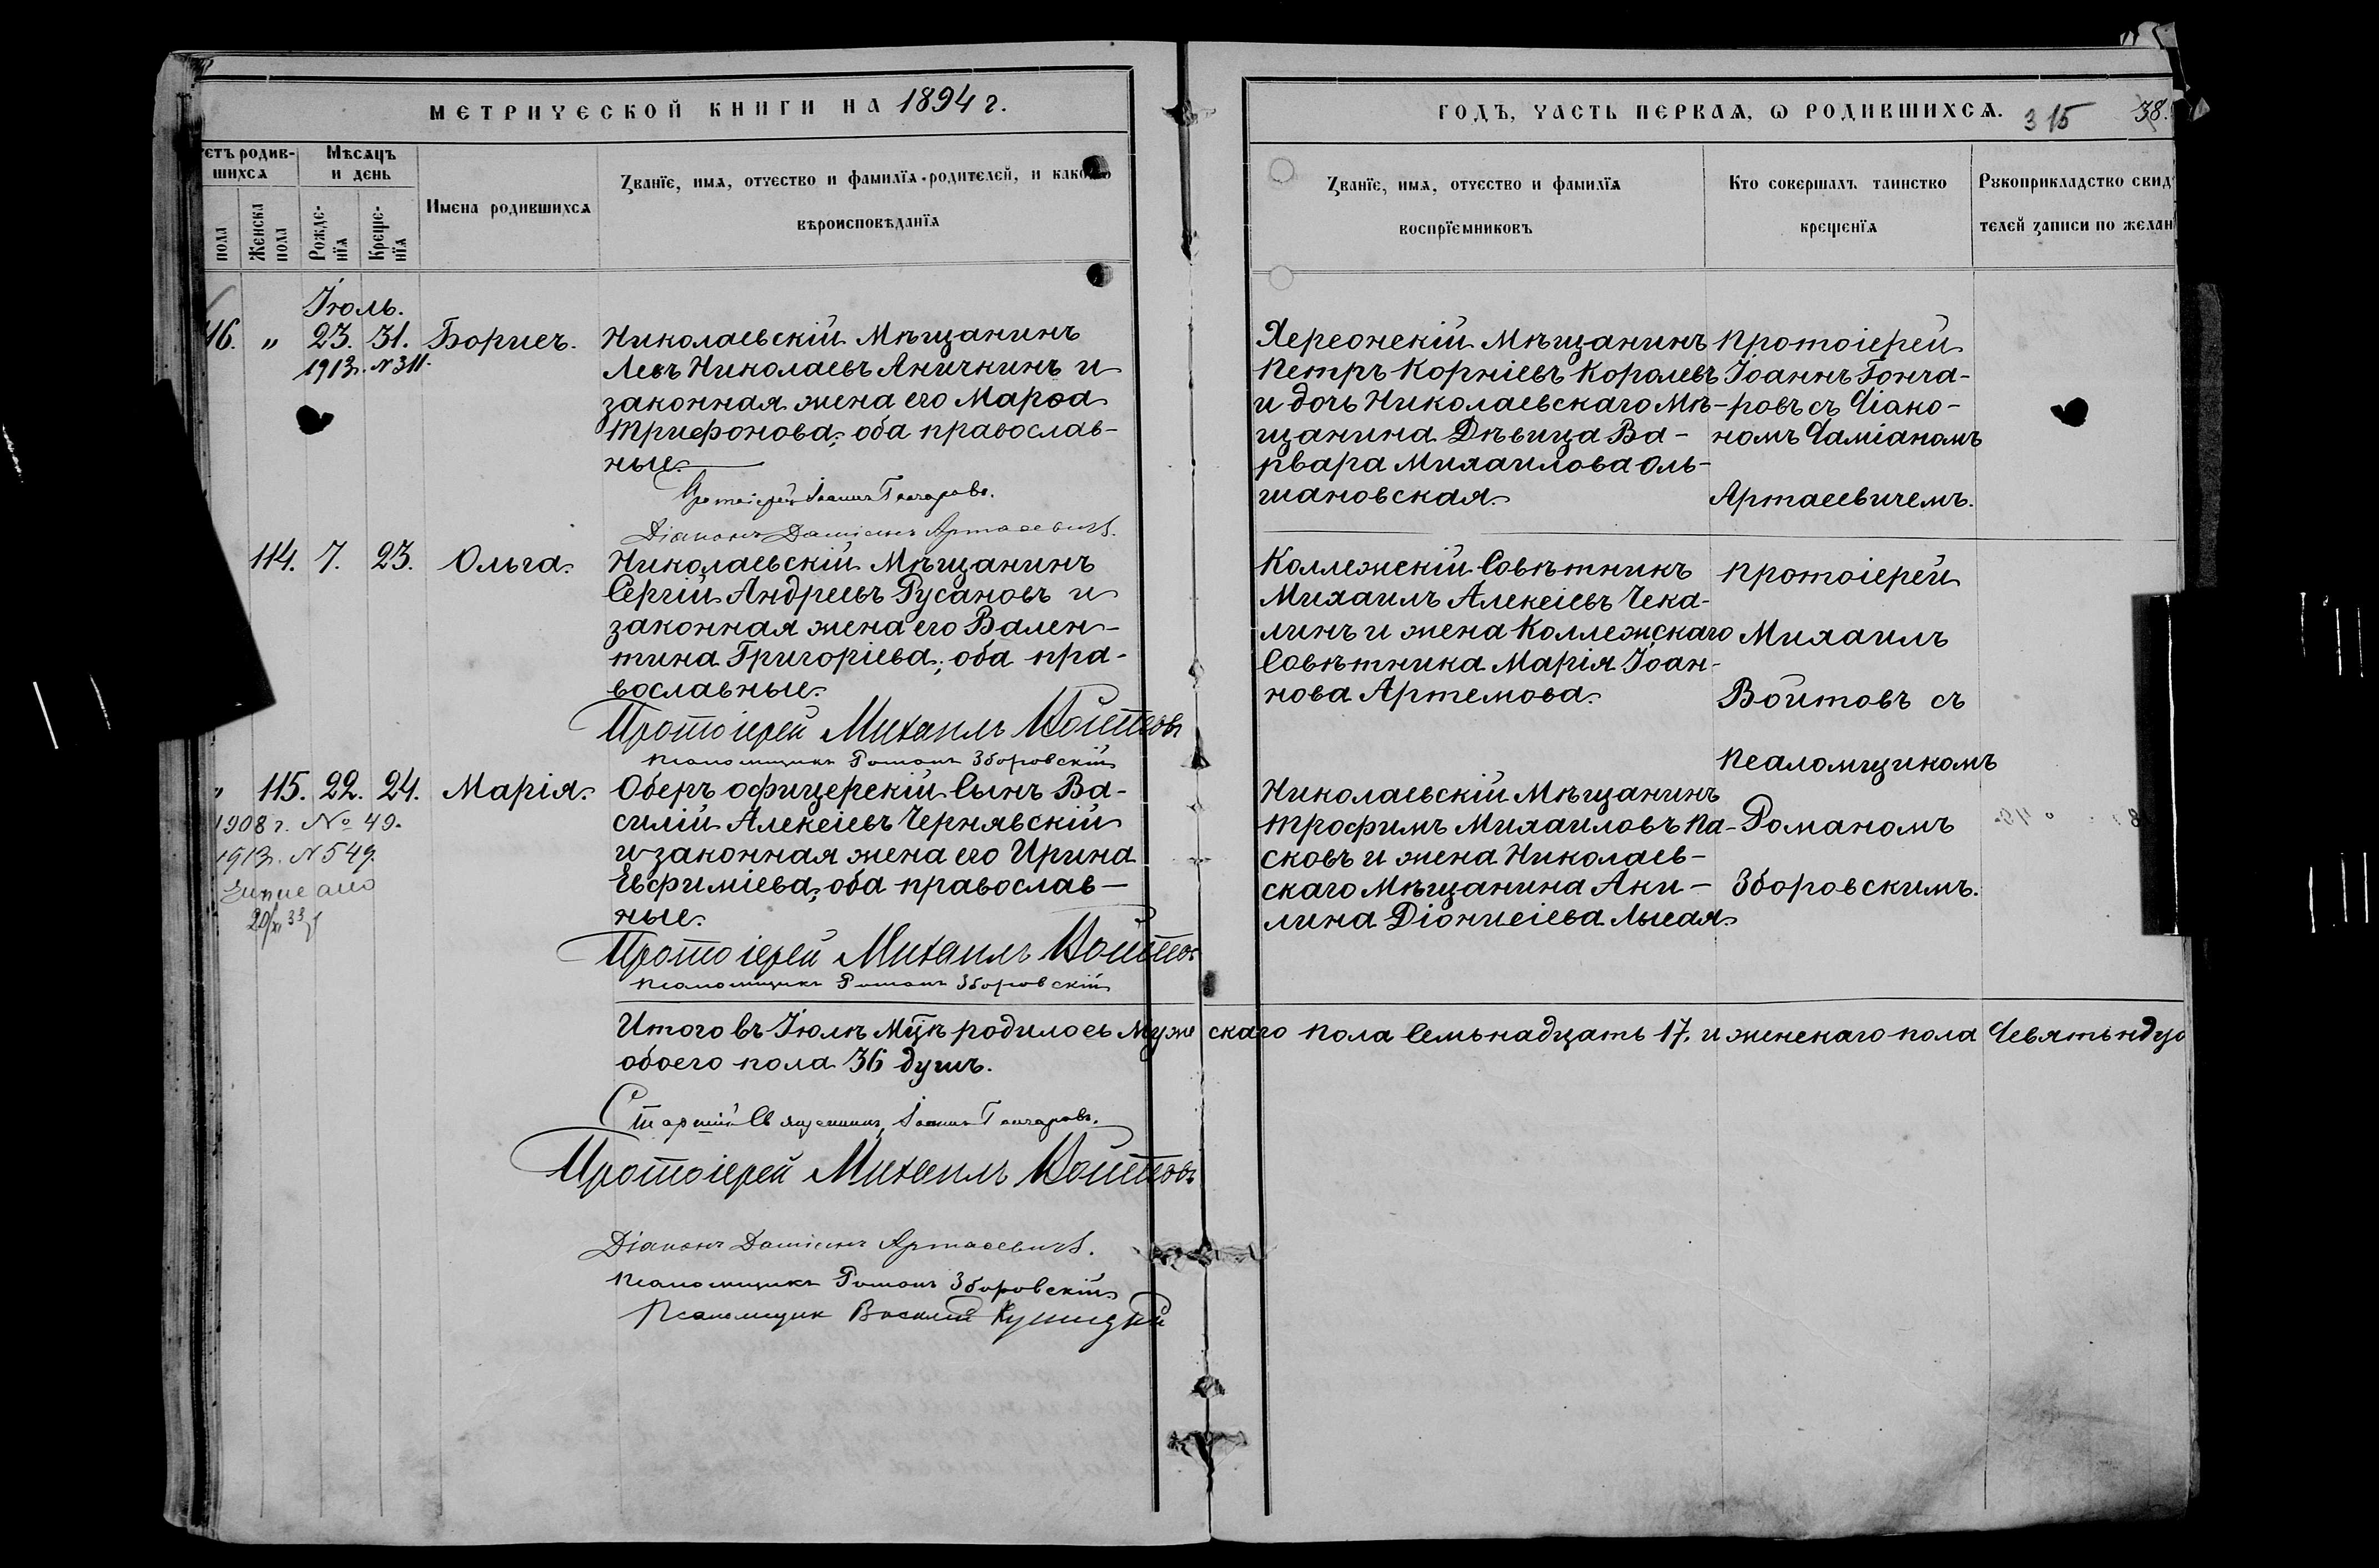 МЕТРИЧЕСКОЙ КНИГИ НА 1894 г.
ГОДЪ, ЧАСТЬ ПЕРВАЯ, Ѡ РОДИВШИХСЯ. 315 38.
родив-
шихся
Мѣсяцъ
и день
пола
Женска
пола
Рожде-
нїя
Креще-
нїя
Имена родившихся
Званїе, имя, отчество и фамилїя родителей, и
вѣроисповѣданїя
Званїе, имя, отчество и фамилїя
воспрїемниковъ
Кто совершалъ таинство
крещенїя
Рукоприкладство
телей записи по
Іюль.
" 23. 31. Борисъ.
1913г. N 311.
Николаевскій Мѣщанинъ
Левъ Николаевъ Аничкинъ и
законная жена его Марѳа
Трифонова; оба православ-
ные.
Протоіерей Іоаннъ Гончаровъ.
Діаконъ Даміанъ Артасевичъ.
Херсонскій Мѣщанинъ
Петръ Корніевъ Королевъ
и дочь Николаевскаго Мѣ-
щанина Дѣвица Ва-
рвара Михаилова Оль-
шановская.
Протоіерей
Іоаннъ Гонча-
ровъ съ Діако-
номъ Даміаномъ
Артасевичемъ.
114. 7. 23. Ольга.
Николаевскій Мѣщанинъ
Сергій Андреевъ Русановъ и
законная жена его Вален-
тина Григоріева; оба пра-
вославные.
Протоіерей Михаилъ Войтовъ
Псаломщикъ Романъ Зборовскій
Коллежскій Совѣтникъ
Михаилъ Алексіевъ Чека-
линъ и жена Коллежскаго
Совѣтника Марія Іоан-
нова Артемова.
Протоіерей
Михаилъ
Войтовъ съ
Псаломщикомъ
Романомъ
Зборовскимъ.
" 115. 22. 24. Марія.
1908 г. № 49.
1913г. N 549.
Оберъ офицерскій Сынъ Ва-
силій Алексіевъ Чернявскій
и законная жена его Ирина
Евфиміева; оба православ-
ные.
Протоіерей Михаилъ Войтовъ
Псаломщикъ Романъ Зборовскій
Николаевскій Мѣщанинъ
Трофимъ Михаиловъ Па-
сковъ и жена Николаев-
скаго Мѣщанина Аки-
лина Діонисіева Лысая.
Итого въ Іюлѣ Мцѣ родилось Мужескаго пола Семьнадцать 17. и женскаго пола
обоего пола 36 душъ.
Старшій Священникъ, Іоаннъ Гончаровъ.
Протоіерей Михаилъ Войтовъ
Діаконъ Даміанъ Артасевичъ.
Псаломщикъ Романъ Зборовскій
Псаломщик Василій